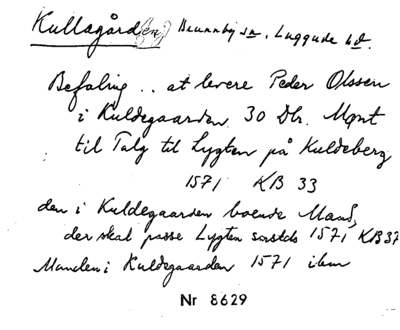 Kullagård(en) Brunnby sn, Luggude hd.
Befaling .. at levere Peder Olssen
i Kuldegaarden 30 Dlr. Mønt
til Talg til Lygten på Kuldeberg
1571 KB 33
den i Kuldegaarden boende Mand,
der skal passe Lygten smstds 1571 KB 37
Manden i Kuldegaarden 1571 ibm
Nr 8629